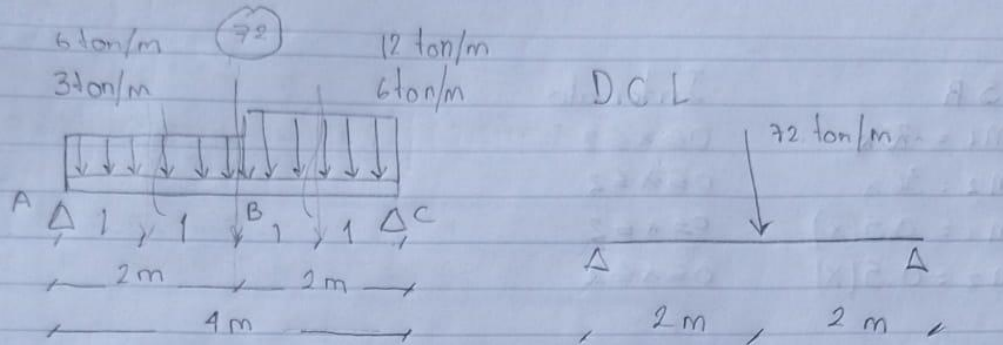 6 ton/m 72 12 ton/m
3 ton/m 6 ton/m D.C.L
72 ton/m
A B C
1 1 1 1
2m 2m
4m
2m 2m